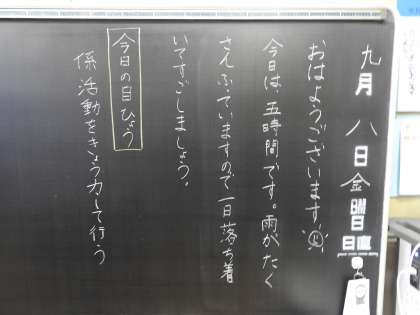 九月八日金曜日
日直
おはようございます
今日は、五時間です。雨がたく
さんふっていますので一日落ち着
いてすごしましょう。
今日の目ひょう
係活動をきょう力して行う